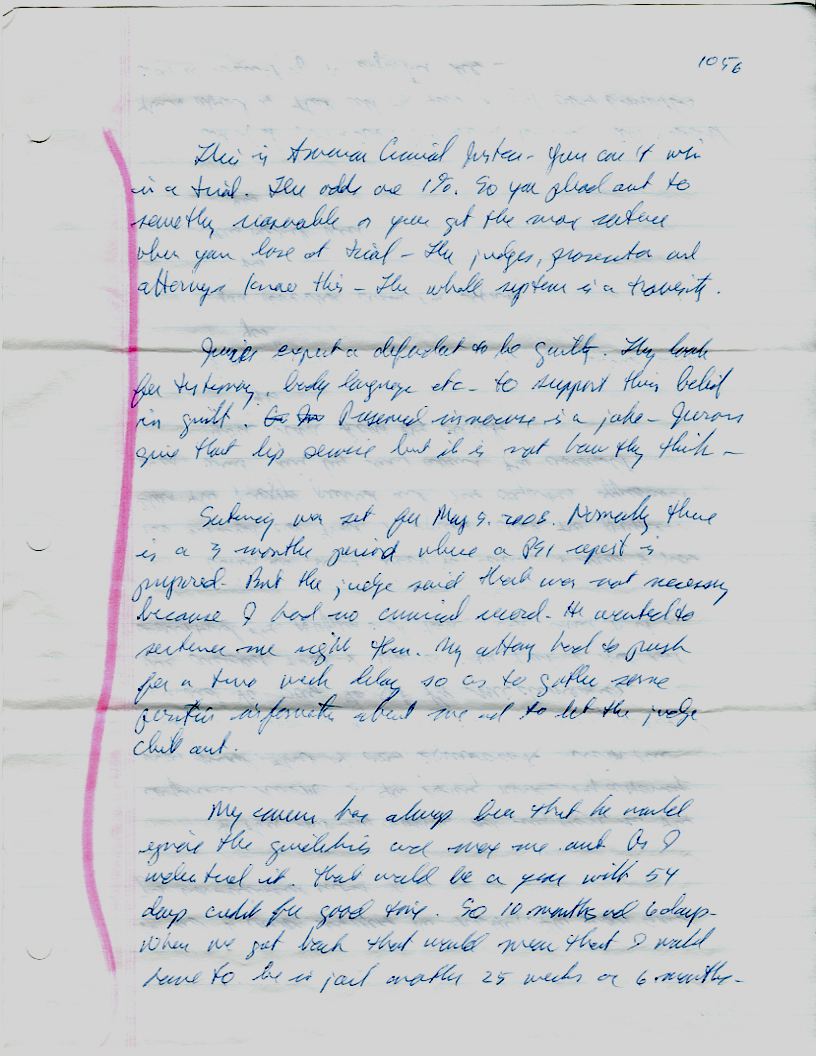 1056
This is American Criminal Justice - You can't win
in a trial. The odds are 1%. So you plead out to
something reasonable or you get the max sentence
when you lose at trial - The judges, prosecutor and
attorneys know this - The whole system is a travesty.
Juries expect a defendant to be guilty. They look
for testimony, body language etc - to support this belief
in guilt. Presumed innocence is a joke - Jurors
give that lip service but it is not how they think -
Sentencing was set for May 9, 2008. Normally there
is a 3 months period where a PSI report is
prepared - But the judge said that was not necessary
because I had no criminal record - He wanted to
sentence me right then. My attorney had to push
for a two week delay so as to gather some
positive information about me and to let the judge
chill out.
My concern has always been that he would
ignore the guidelines and max me out. As I
understand it, that would be a year with 54
days credit for good time. So 10 months and 6 days -
When we get back that would mean that I would
have to be in jail another 25 weeks or 6 months -